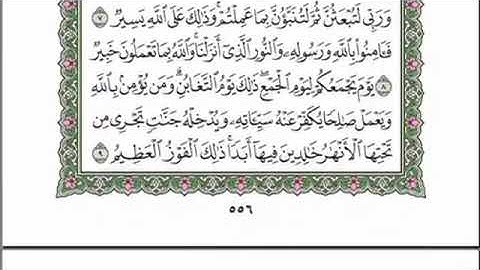 وَرَبِّي لَتُبْعَثُنَّ ثُمَّ لَتُنَبَّؤُنَّ بِمَا عَمِلْتُمْ ۚ وَذَٰلِكَ عَلَى ٱللَّهِ يَسِيرٌ ٧
فَـَٔامِنُوا۟ بِٱللَّهِ وَرَسُولِهِۦ وَٱلنُّورِ ٱلَّذِىٓ أَنزَلْنَا ۚ وَٱللَّهُ بِمَا تَعْمَلُونَ خَبِيرٌ
٨ يَوْمَ يَجْمَعُكُمْ لِيَوْمِ ٱلْجَمْعِ ۖ ذَٰلِكَ يَوْمُ ٱلتَّغَابُنِ ۗ وَمَن يُؤْمِنۢ بِٱللَّهِ
وَيَعْمَلْ صَـٰلِحًا يُكَفِّرْ عَنْهُ سَيِّـَٔاتِهِۦ وَيُدْخِلْهُ جَنَّـٰتٍ تَجْرِى مِن
تَحْتِهَا ٱلْأَنْهَـٰرُ خَـٰلِدِينَ فِيهَآ أَبَدًا ۚ ذَٰلِكَ ٱلْفَوْزُ ٱلْعَظِيمُ ٩
٥٥٦